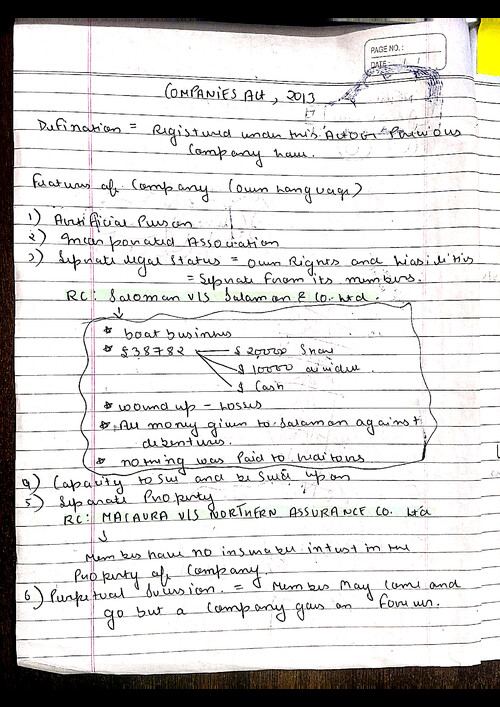 PAGE NO.:
DATE
COMPANIES Act, 2013
Defination = Registered under this Act or Previous
Company law.
Features of Company (own language)
1) Artificial Person
2) Incorporated Association
3) Seprate legal Status = own Rights and liabilities
= Seprate from its members.
RC: Saloman v/s Salaman & Co. Ltd.
* boat business
* $38782 $ 20000 Share
$ 10000
$ Cash
* wound up - losses
* All money given to Salaman against
debentures.
* nothing was Paid to creditors
4) Capacity to Sue and be Sued upon
5) Separate Property
RC: MACAURA V/S NORTHERN ASSURANCE CO. Ltd
Members have no insurable intrest in the
Property of Company.
6) Perpetual Sucession. = Members May Come and
go but a Company goes on Forever.